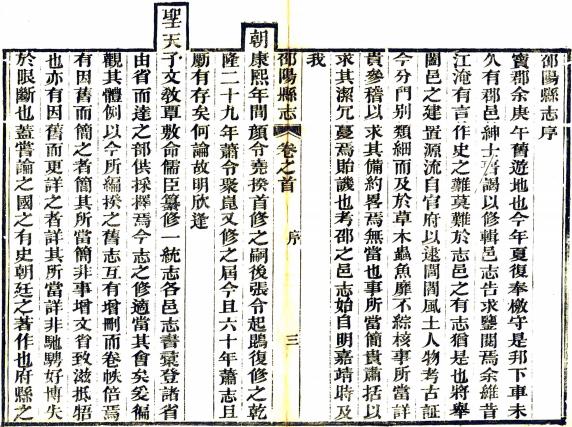 邵陽縣志序
寶郡余庚午舊遊地也今年夏復奉檄守是邦下車未
久有郡邑紳士謁以修輯邵志告求鑒閱焉余維昔
江淹有言作史之難莫難於志邑之有志猶是也將舉
闔邑之建置源流自官府以逮閭閻風土人物考古証
今分門别類細而及於草木蟲魚靡不綜核事所當詳
貴參稽以求其備約畧焉無當也事所當簡貴肅括以
求其潔冗蔓焉貽譏也考邵之邑志始自明嘉靖時及
我
邵陽縣志 卷之首 序 三
朝康熙年間顔令堯揆首修之嗣後張令起鵾復修之乾
隆二十九年蕭令聚崑又修之屆今且六十年蕭志且
廟有存矣何論故明欣逢
聖天子文教覃敷命儒臣纂修一統志各邑志書彙登諸省
由省而達之部供採擇焉今志之修適當其會矣爰徧
觀其體例以今所編揆之舊志互有增刪而卷帙倍焉
有因舊而簡之者簡其所當簡非事增文省致滋抵牾
也亦有因舊而更詳之者詳其所當詳非馳騁好博失
於眼斷也蓋嘗論之國之有史朝廷之著作也府縣之